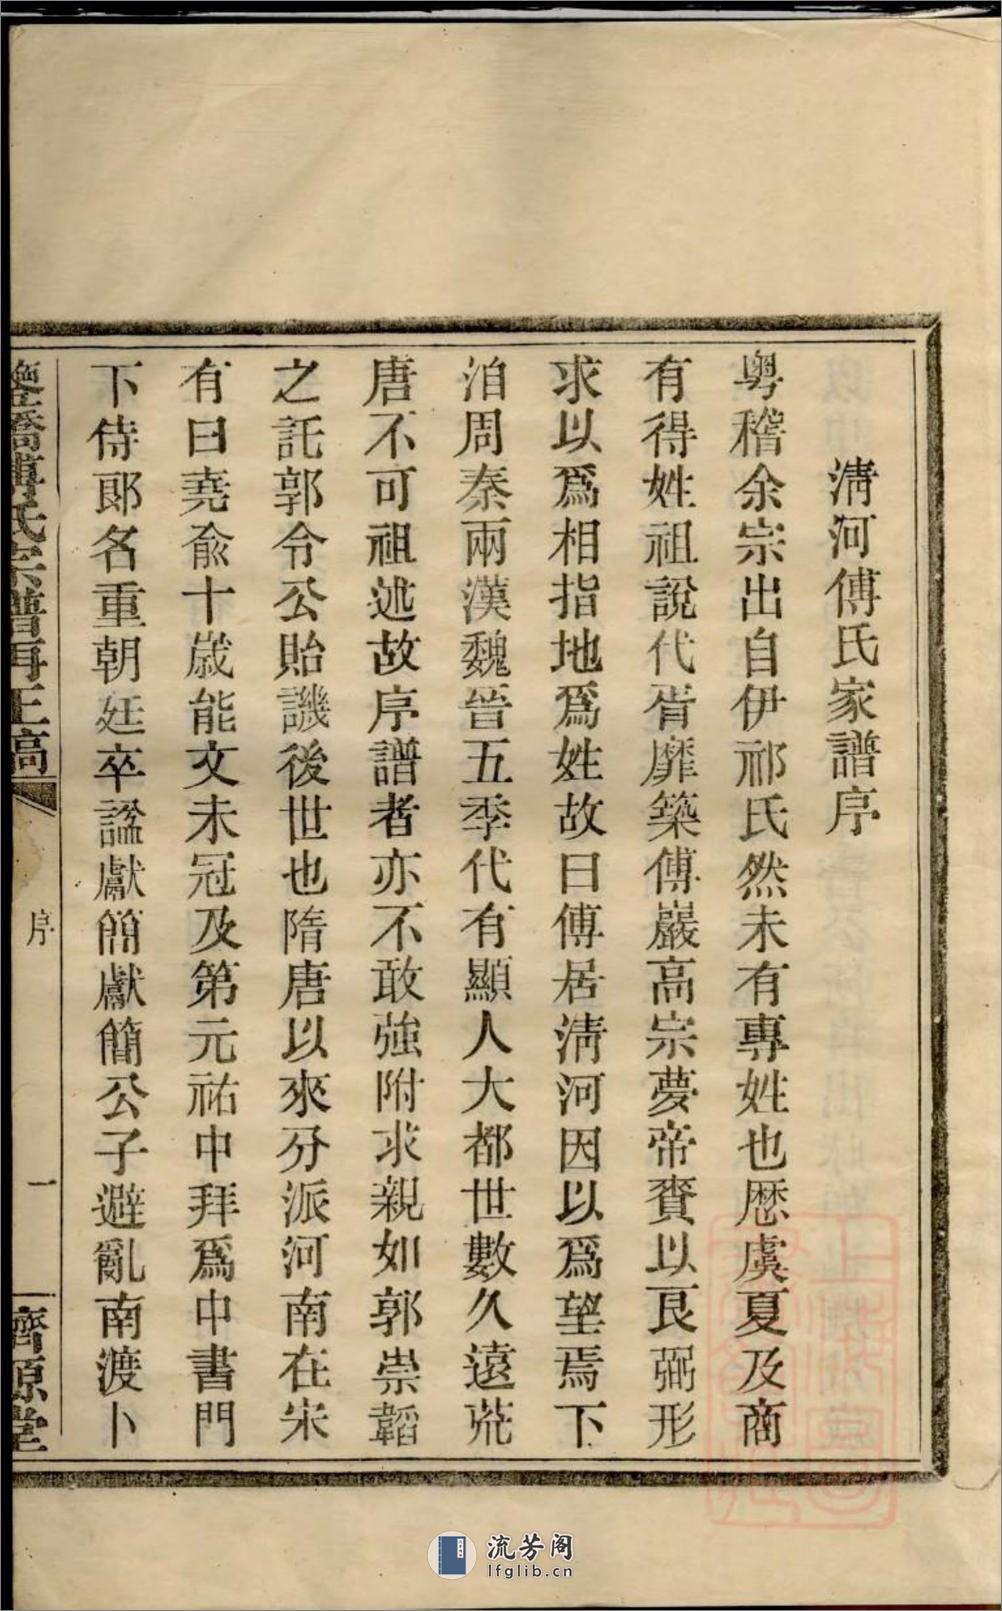 清河傅氏家譜序
粵稽余宗出自伊祁氏然未有專姓也歷虞夏及商
有得姓祖說代胥靡築傅巖高宗夢帝賚以良弼形
求以爲相指地爲姓故曰傅居清河因以爲望焉下
洎周秦兩漢魏晉五季代有顯人大都世數久遠荒
唐不可祖述故序譜者亦不敢強附求親如郭崇韜
之託郭令公貽譏後世也隋唐以來分派河南在宋
有曰堯俞十歲能文未冠及第元祐中拜爲中書門
下侍郎名重朝廷卒諡獻簡獻簡公子避亂南渡卜
傅氏宗譜
序
一
濟源堂
流芳阁
lfglib.cn